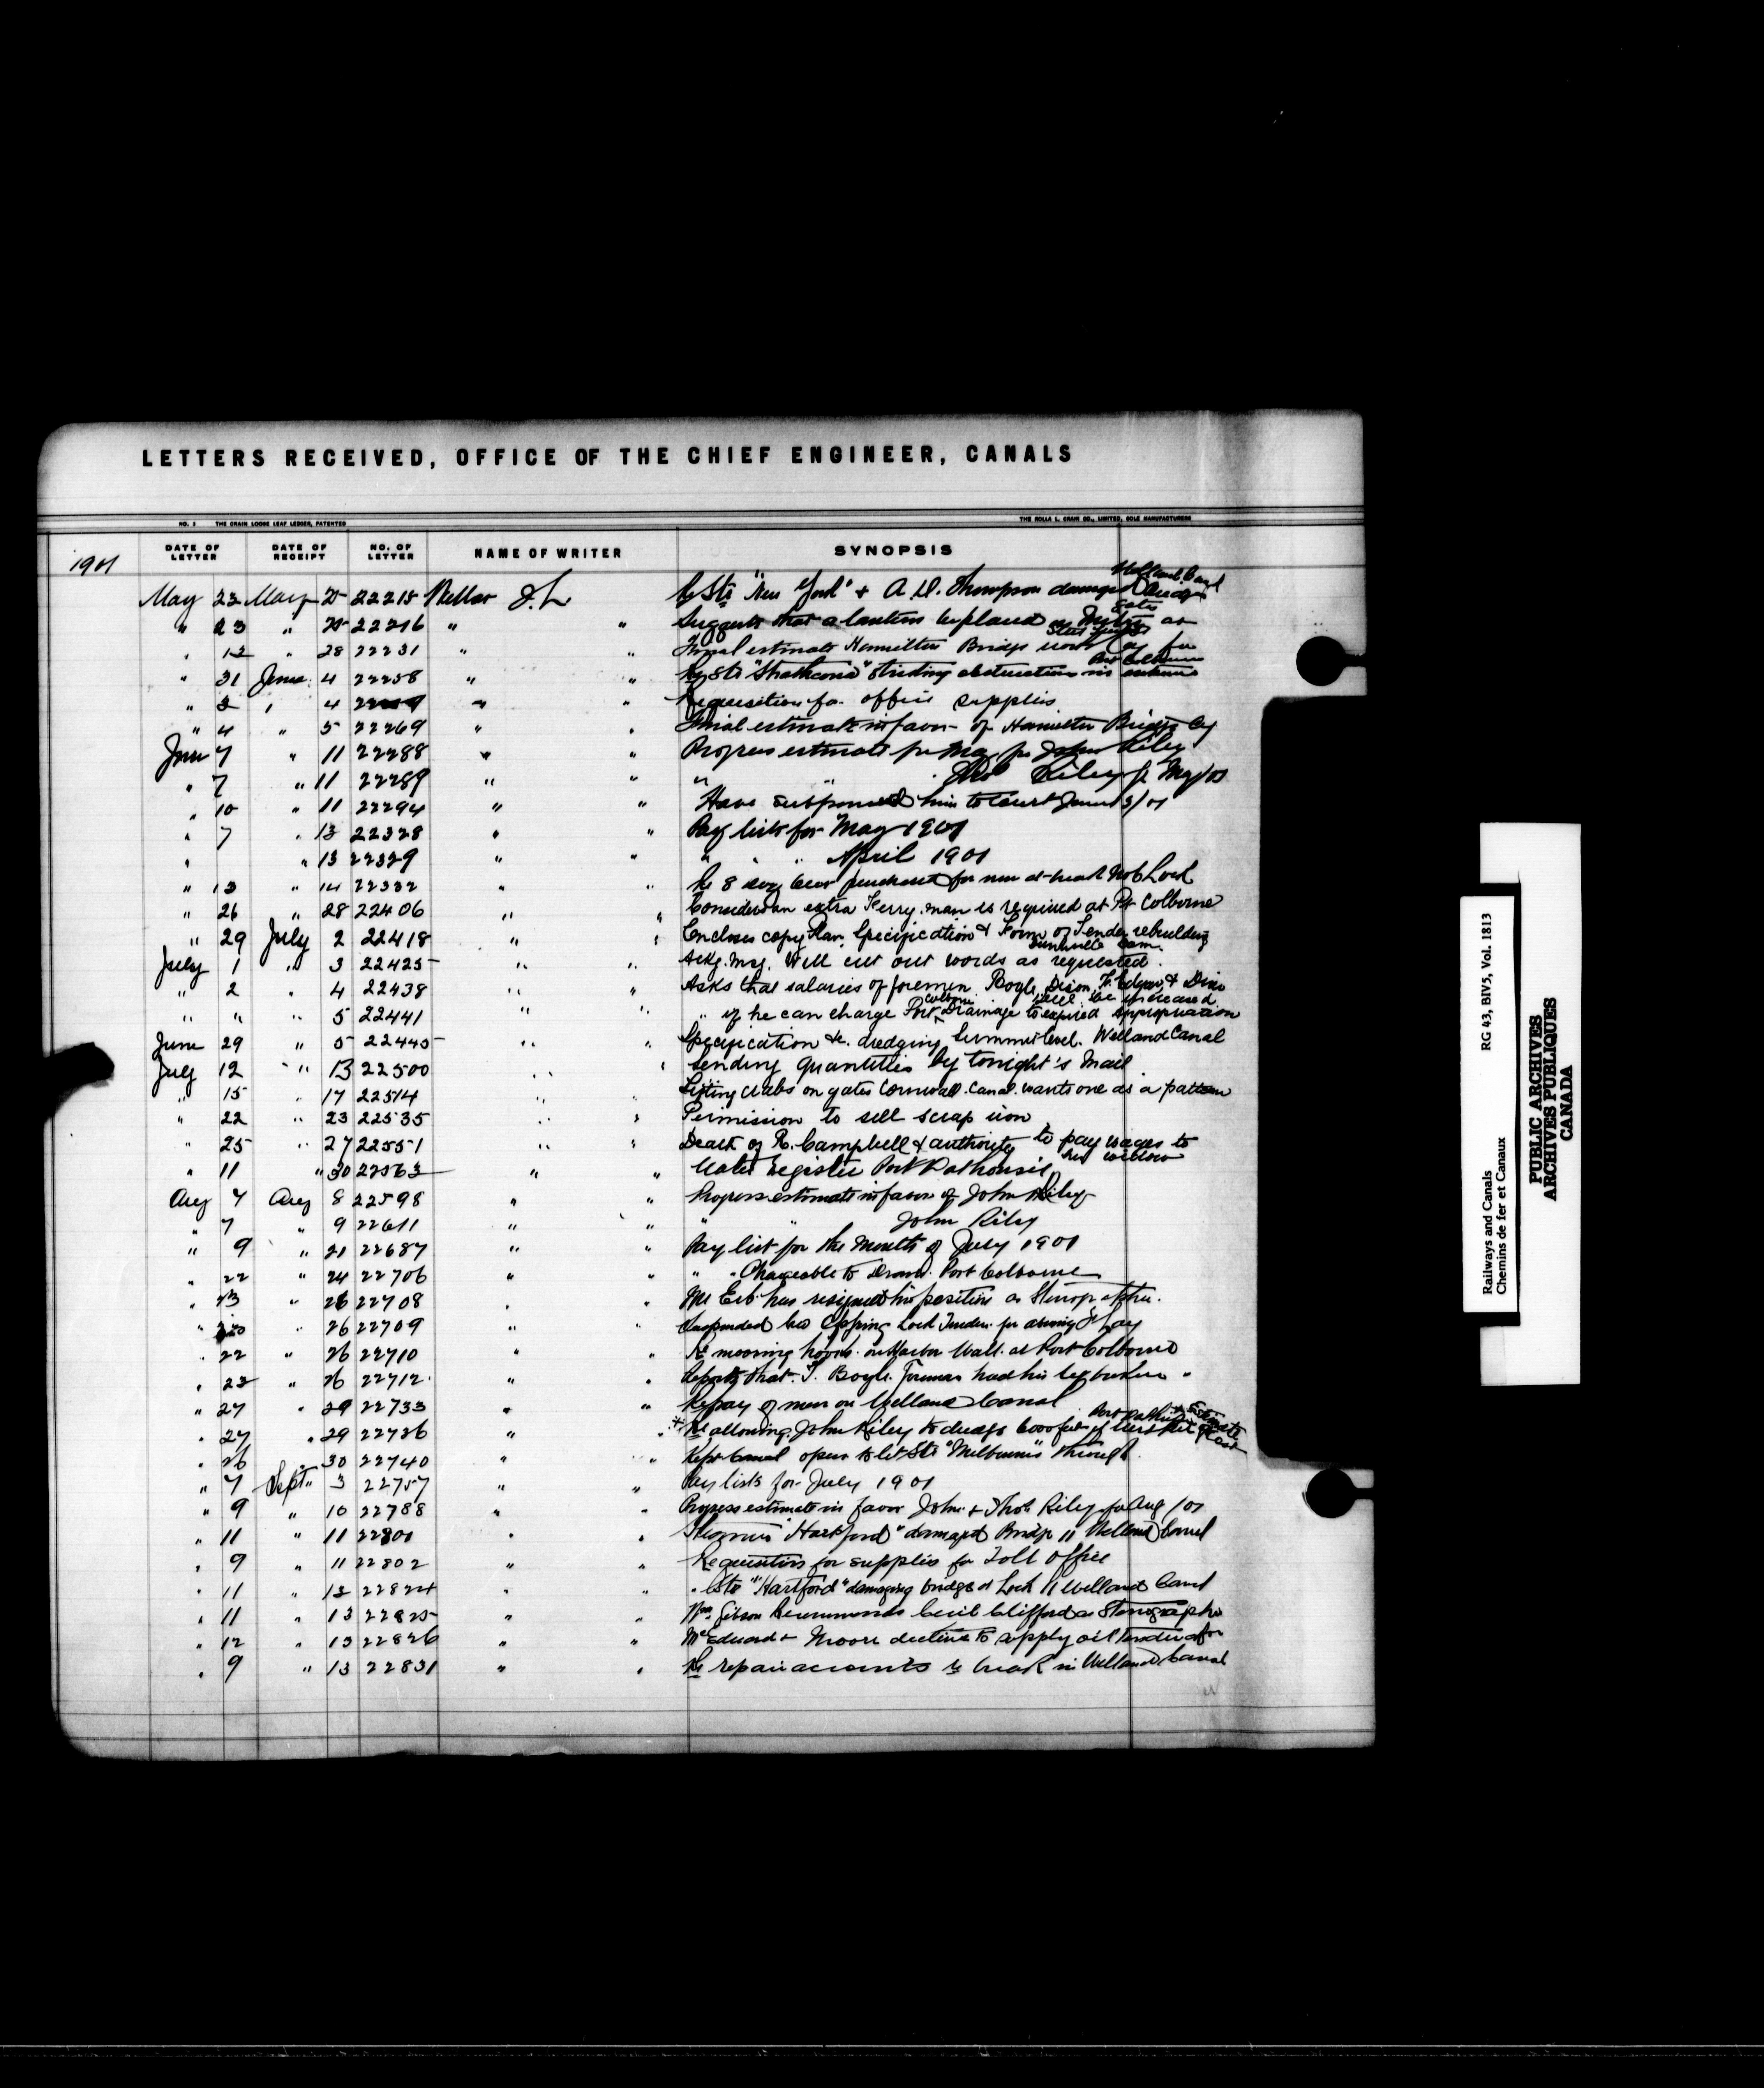 LETTERS RECEIVED, OFFICE OF THE CHIEF ENGINEER, CANALS
NO. 1 THE CRAIN LOOSE LEAF LEDGER, PATENTED THE ROLLA L. CRAIN CO., LIMITED, SOLE MANUFACTURERS
1901 DATE OF LETTER DATE OF RECEIPT NO. OF LETTER NAME OF WRITER SYNOPSIS
Welland Canal
May 23 May 25 22215 Weller J.L. Str "New York" & A. D. Thompson damage
gates
" 23 " 25 22216 " " Suggests that a lantern be placed as
" 12 " 28 22231 " " Final estimate Hamilton Bridge work Coy for
Port Colborne
" 31 June 4 22258 " " Re Str "Strathcona" striking obstruction in entrance
" 3 " 4 " " Requisition for office supplies
" 4 " 5 22269 " " Final estimate in favor of Hamilton Bridge Coy
June 7 " 11 22288 " " Progress estimate for May for John Riley
" 7 " 11 22289 " " " " Thos Riley for May/01
" 10 " 11 22294 " " Have subpoenaed him to Court June 13/01
" 7 " 13 22328 " " Pay lists for May 1901
" " 13 22329 " " " " " April 1901
" 13 " 14 22332 " " Re 8 purchased for men at break No 6 Lock
" 26 " 28 22406 " " Considers an extra Ferry man is required at Pt Colborne
" 29 July 2 22418 " " Encloses copy Plan, Specification & Form of Tender rebuilding
Dunnville Dam.
July 1 " 3 22425 " " Ackg. msg. Will cut out words as requested.
" 2 " 4 22438 " " Asks that salaries of foremen Boyle, Dixon, F. Edgar &
Colborne be increased
" " " 5 22441 " " " if he can charge Port Drainage to expired appropriation
June 29 " 5 22445 " " Specification &c. dredging Summit level. Welland Canal
July 12 " 13 22500 " " Sending quantities by tonight's Mail
" 15 " 17 22514 " " Lifting crabs on gates Cornwall Canal. wants one as a pattern
" 22 " 23 22535 " " Permission to sell scrap iron
" 25 " 27 22551 " " Death of R. Campbell & authority to pay wages to
his widow
" 11 " 30 22563 " " Water register Port Dalhousie
Aug 7 Aug 8 22598 " " Progress estimate in favor of John Riley
" 7 " 9 22611 " " " " John Riley
" 9 " 21 22687 " " Pay list for the month of July 1901
" 22 " 24 22706 " " " " Chargeable to Drain. Port Colborne
" 23 " 26 22708 " " Mr Erb has resigned his position as Stenographer.
" 20 " 26 22709 " " Suspended Lock Tender for
" 22 " 26 22710 " " Re mooring hooks on Harbor Wall at Port Colborne
" 23 " 26 22712 " " Reports that T. Boyle Foreman had his leg broken "
" 27 " 29 22733 " " Re pay of men on Welland Canal
Port Dalhousie Estimate
" 27 " 29 22736 " " Re allowing John Riley to dredge 6000 feet of of Cost
" 26 " 30 22740 " " Kept Canal open to let Str "Melbourne" through
" 7 Sept 3 22757 " " Pay lists for July 1901
" 9 " 10 22788 " " Progress estimate in favor John & Thos Riley for Aug/01
" 11 " 11 22801 " " Steamer "Hartford" damaged Bridge 11 Welland Canal
" 9 " 11 22802 " " Requisition for supplies for Toll Office
" 11 " 12 22824 " " Str "Hartford" damaging bridge at Lock 11 Welland Canal
" 11 " 13 22825 " " Wm. Gibson Recommends Cecil Clifford as Stenographer
" 12 " 13 22826 " " & Moore decline to supply oil tendered for
" 9 " 13 22831 " " Re repair accounts to break in Welland Canal
Railways and Canals RG 43, BIV5, Vol. 1813
Chemins de fer et Canaux
PUBLIC ARCHIVES
ARCHIVES PUBLIQUES
CANADA